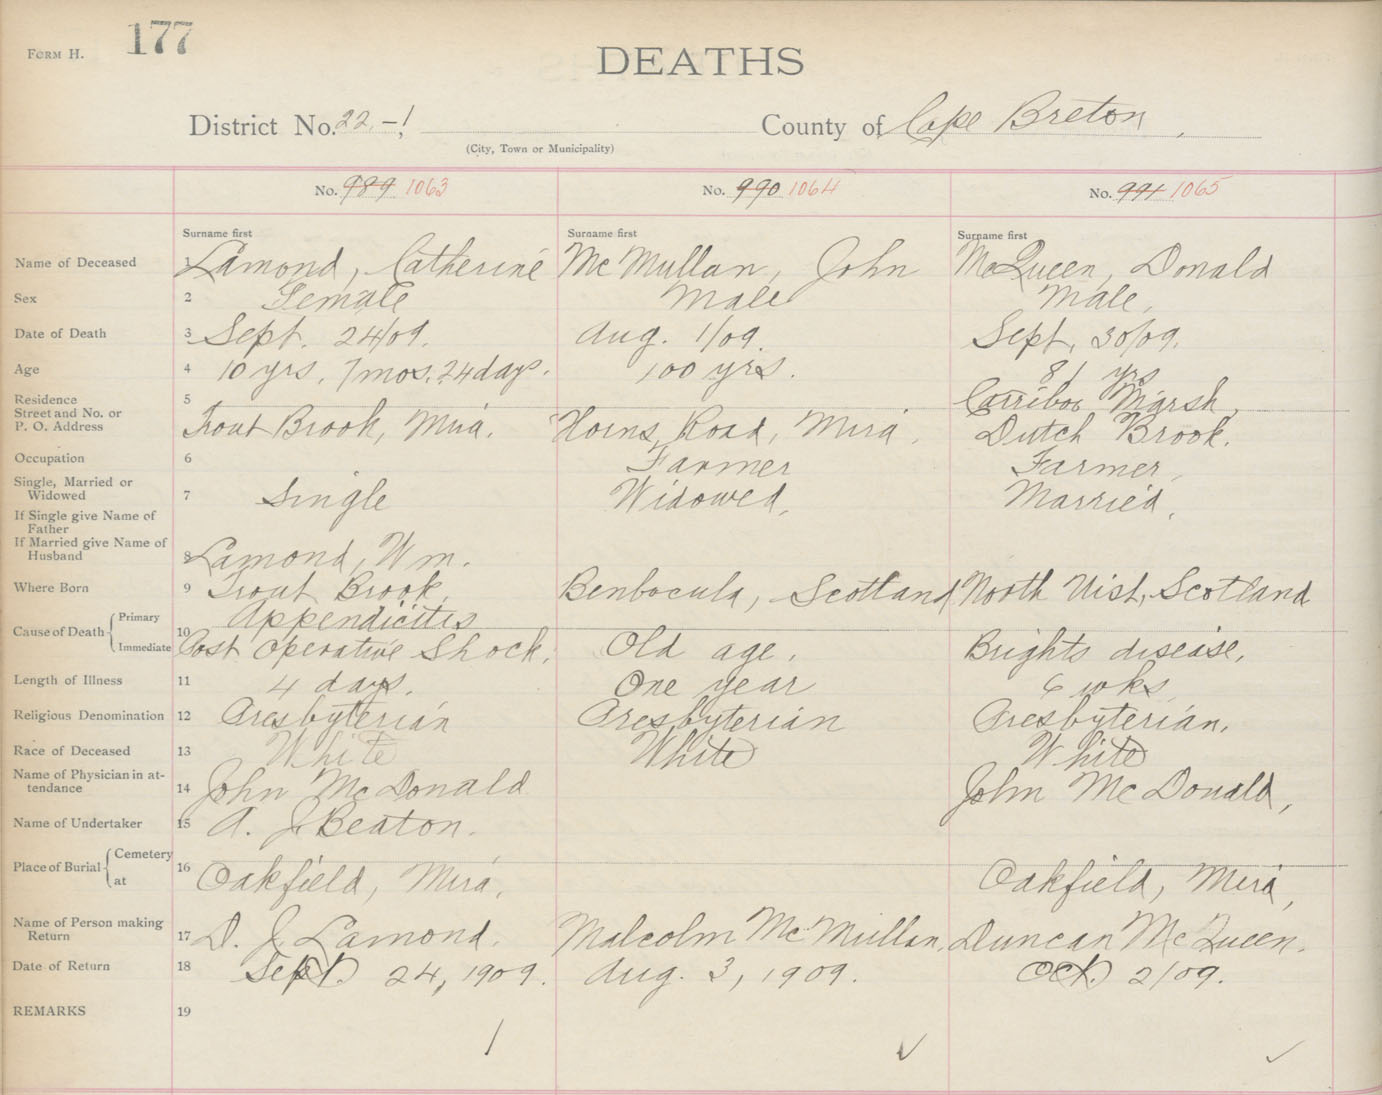 FORM H.
177
DEATHS
District No. 22-1
County of Cape Breton,
(City, Town or Municipality)
No. 989 1063
No. 990 1064
No. 991 1065
Surname first
Surname first
Surname first
Name of Deceased 1 Lamond, Catherine Mc Mullan, John McQueen, Donald
Sex 2 Female Male Male,
Date of Death 3 Sept. 24/09. Aug. 1/09. Sept, 30/09.
Age 4 10 yrs, 7 mos. 24 days. 100 yrs. 81 yrs
Residence 5 Carribou Marsh,
Street and No. or
P. O. Address Trout Brook, Mira. Horns Road, Mira, Dutch Brook.
Occupation 6 Farmer Farmer,
Single, Married or
Widowed 7 Single Widowed, Married,
If Single give Name of
Father
If Married give Name of
Husband 8 Lamond, Wm.
Where Born 9 Trout Brook, Benbocula, Scotland North Uist, Scotland
Cause of Death Primary Appendicites
10
Immediate Post Operative Shock. Old age. Brights disease,
Length of Illness 11 4 days. One year 6 wks
Religious Denomination 12 Presbyterian Presbyterian Presbyterian,
Race of Deceased 13 White White White
Name of Physician in at-
tendance 14 John McDonald John McDonald,
Name of Undertaker 15 A. J. Beaton.
Place of Burial Cemetery
at 16 Oakfield, Mira, Oakfield, Mira,
Name of Person making
Return 17 D. J. Lamond. Malcolm McMullan, Duncan McQueen.
Date of Return 18 Sept. 24, 1909. Aug. 3, 1909. Oct. 2/09.
REMARKS 19